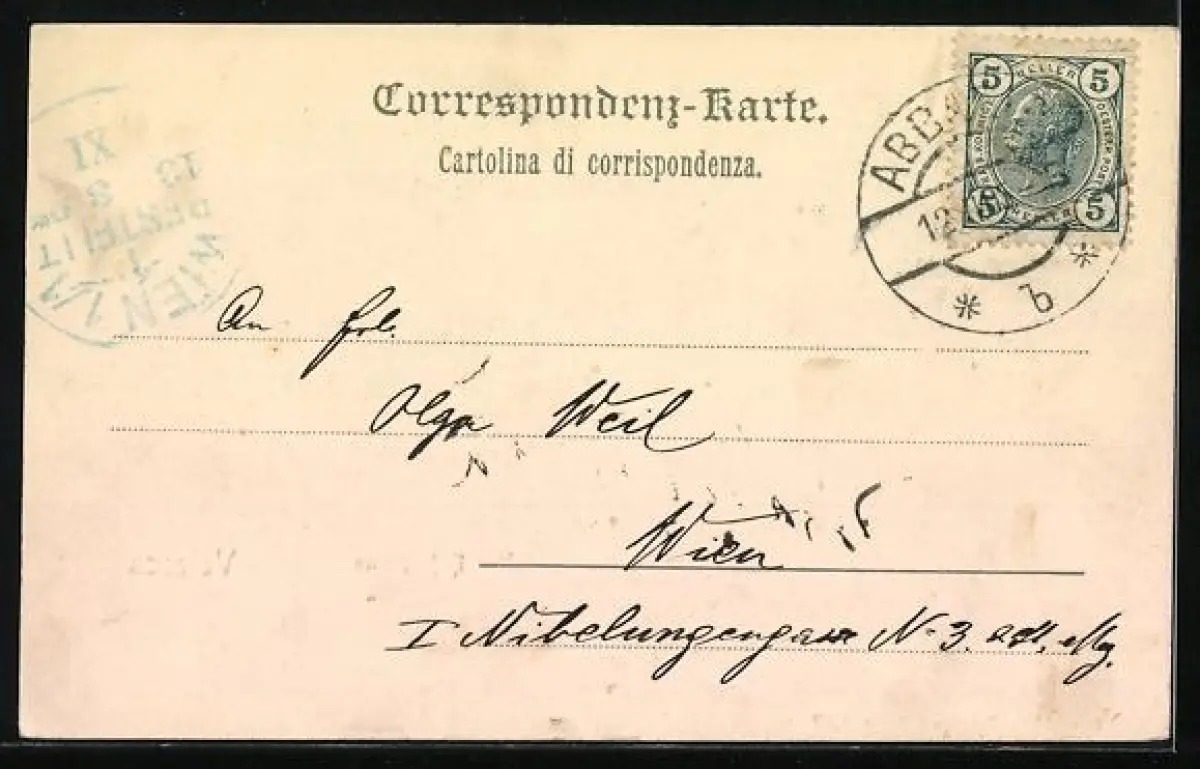 Correspondenz-Karte.
Cartolina di corrispondenza.
5 HELLER 5
5 HELLER 5
ABBA
12
* b *
WIEN 1/1
BESTELLT
13
XI
8
An Frl.
Olga Weil
Wien
I Nibelungengasse N. 3.